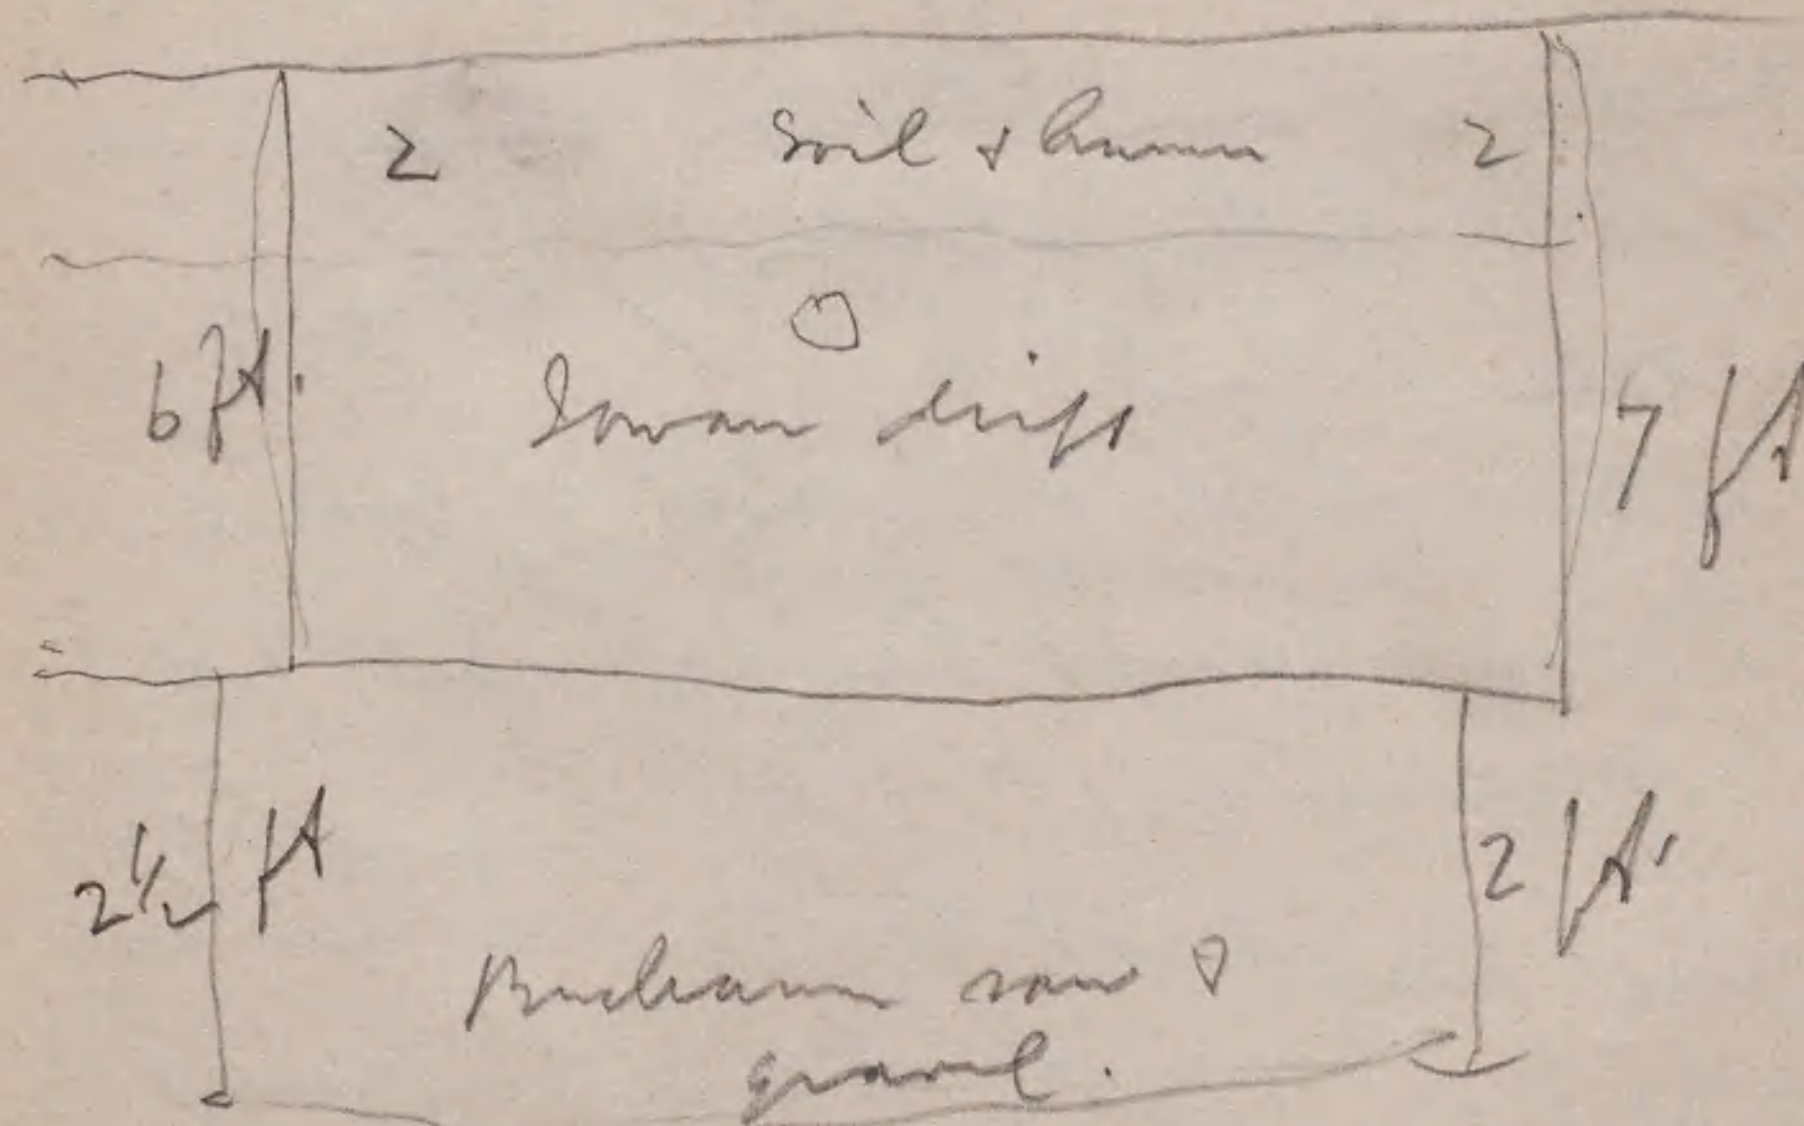 2 Soil & humus 2
6 ft. Iowan drift 7 ft
2½ ft 2 ft.
Buchanan sand &
gravel.